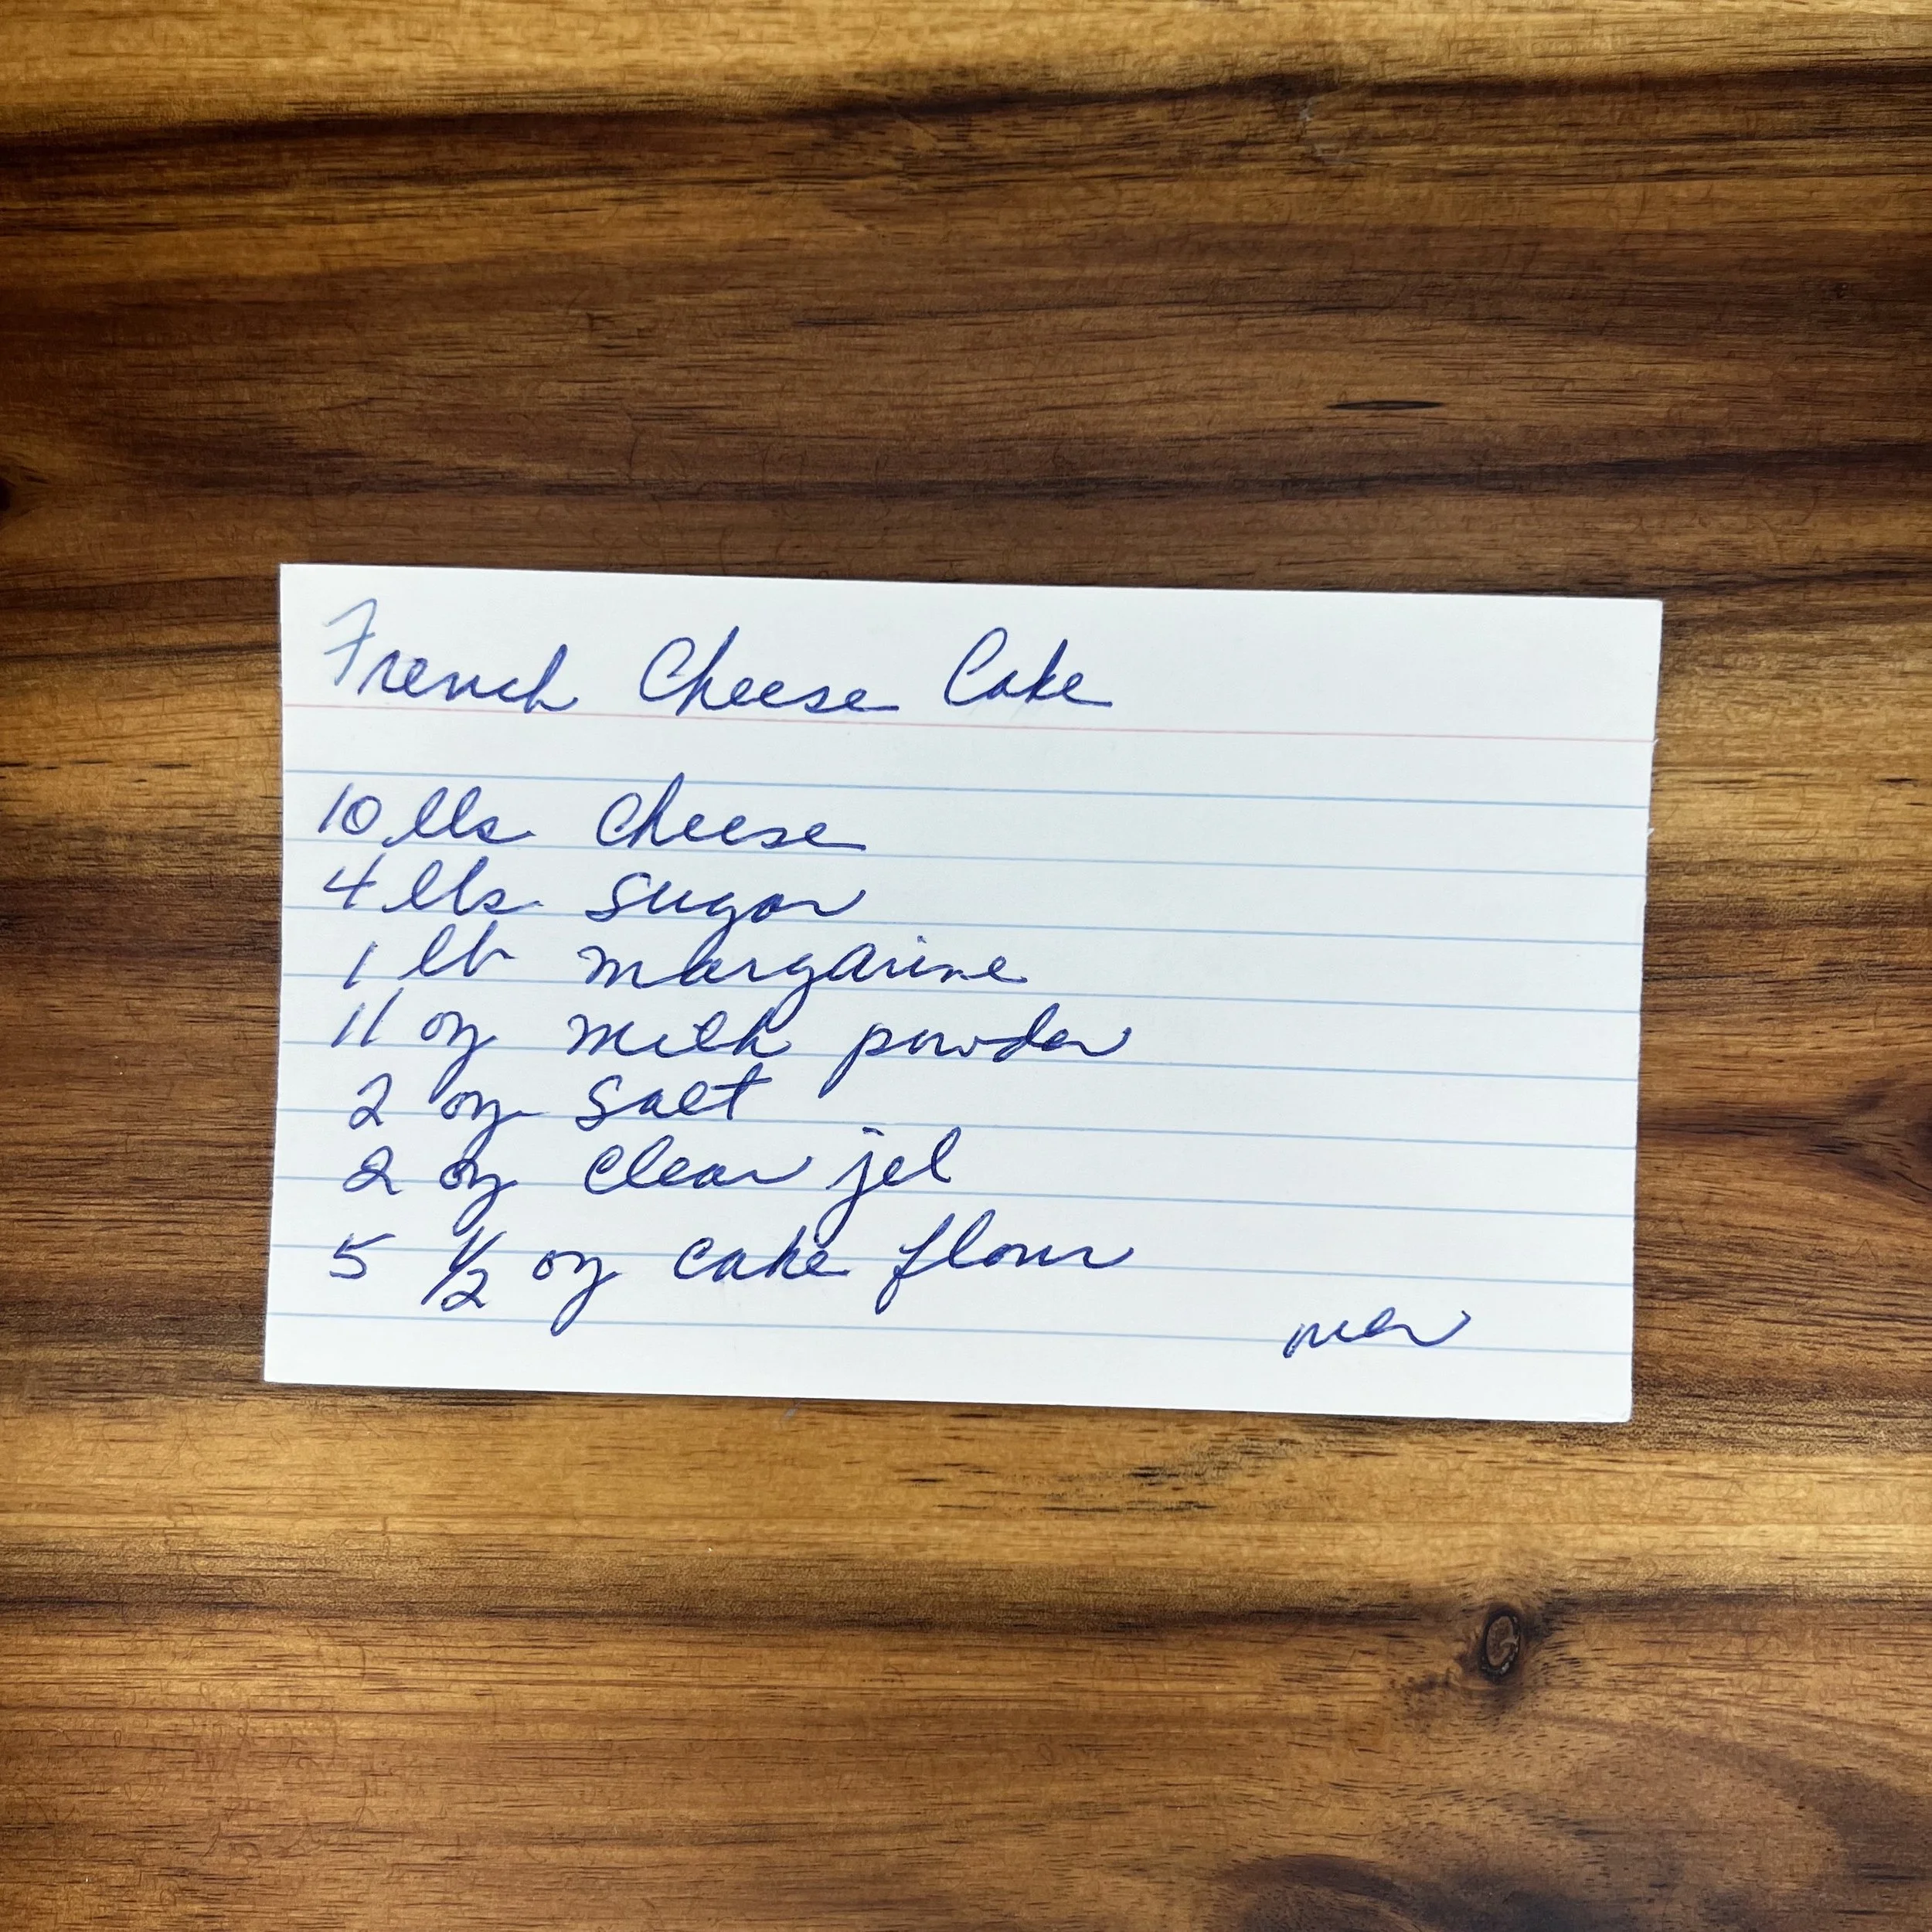 French Cheese Cake
10 lbs cheese
4 lbs sugar
1 lb margarine
11 oz milk powder
2 oz salt
2 oz clear jel
5 1/2 oz cake flour
over